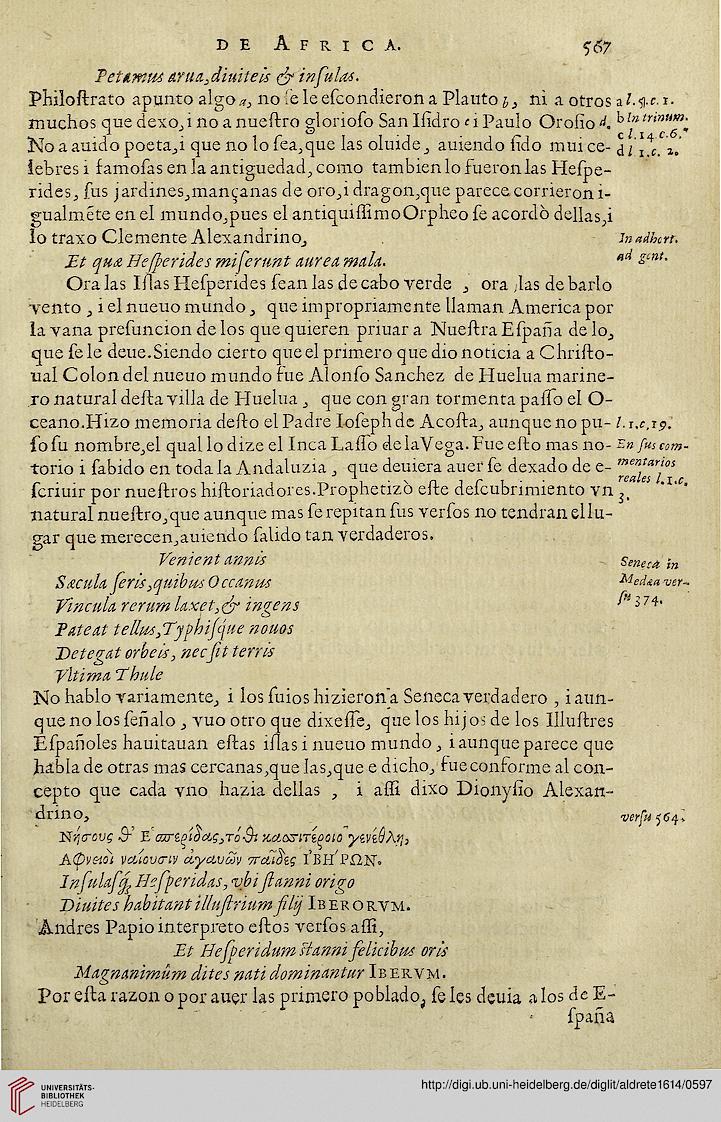 DE AFRICA. 567
Petamus arua, diuiteis & insulas.
Philoſtrato apunto algo a, no ſe le eſcondieron a Plauto b, ni a otros
muchos que dexo, i no a nueſtro glorioſo San Iſidro c i Paulo Oroſio d.
No a auido poeta, i que no lo ſea, que las oluide, auiendo ſido mui ce-
lebres i famoſas en la antiguedad, como tambien lo fueron las Heſpe-
rides, ſus jardines, mançanas de oro, i dragon, que parece corrieron i-
gualmẽte en el mundo, pues el antiquiſſimo Orpheo ſe acordò dellas, i
lo traxo Clemente Alexandrino,
Et quæ Heſperides miſerunt aurea mala.
Ora las Iſlas Heſperides ſean las de cabo verde , ora , las de barlo
vento , i el nueuo mundo , que impropriamente llaman America por
la vana preſuncion de los que quieren priuar a Nueſtra Eſpaña de lo,
que ſe le deue. Siendo cierto que el primero que dio noticia a Chriſto-
ual Colon del nueuo mundo fue Alonſo Sanchez de Huelua marine-
ro natural deſta villa de Huelua , que con gran tormenta paſſo el O-
ceano. Hizo memoria deſto el Padre Ioſeph de Acoſta, aunque no pu-
ſo ſu nombre, el qual lo dize el Inca Laſſo de la Vega. Fue eſto mas no-
torio i ſabido en toda la Andaluzia , que deuiera auer ſe dexado de e-
ſcriuir por nueſtros hiſtoriadores. Prophetizò eſte deſcubrimiento vn
natural nueſtro, que aunque mas ſe repitan ſus verſos no tendran el lu-
gar que merecen, auiendo ſalido tan verdaderos.
Venient annis
Sæcula ſeris, quibus Occanus
Vincula rerum laxet, & ingens
Pateat tellus, Typhiſque nouos
Detegat orbeis, nec ſit terris
Vltima Thule
No hablo variamente, i los ſuios hizieron a Seneca verdadero , i aun-
que no los ſeñalo , vuo otro que dixeſſe, que los hijos de los Illuſtres
Eſpañoles hauitauan eſtas iſlas i nueuo mundo , i aunque parece que
habla de otras mas cercanas, que las, que e dicho, fue conforme al con-
cepto que cada vno hazia dellas , i aſſi dixo Dionyſio Alexan-
drino,
Νήσους θ’ Ἑσπερίδας, τόθι κασσιτέροιο γενέθλη,
Ἀφνειοὶ ναίουσιν ἀγαυῶν παῖδες ΙΒΗΡΩΝ.
Inſulaſq; Heſperidas, vbi ſtanni origo
Diuites habitant illuſtrium filij IBERORVM.
Andres Papio interpreto eſtos verſos aſſi,
Et Heſperidum ſtanni felicibus oris
Magnanimûm dites nati dominantur IBERVM.
Por eſta razon o por auer las primero poblado, ſe les deuia a los de E-
ſpaña
a l.5.c.1.
b In trinum.
c l.14.c.6.
d l 1.c. 2.
In adhort.
ad gent.
l.1.c.19.
En ſus com-
mentarios
reales l.1.c.
3.
Seneca in
Medæa ver-
ſu 374.
verſu 564.
UNIVERSITÄTS-
BIBLIOTHEK
HEIDELBERG
http://digi.ub.uni-heidelberg.de/diglit/aldrete1614/0597